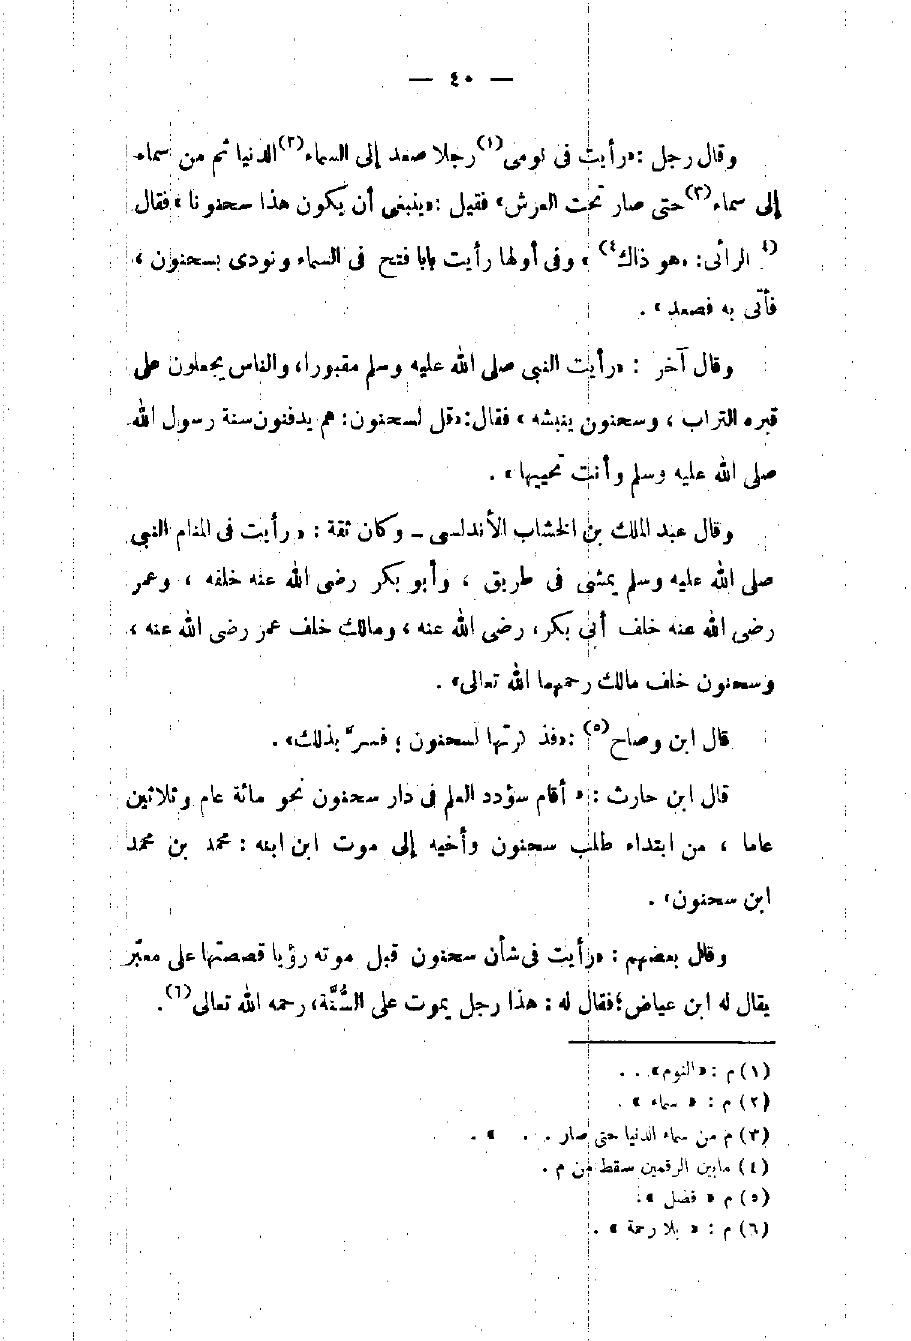 — ٤٠ —
وقال رجل : «رأيت فى نومى(١) رجلا صعد إلى السماء(٢) الدنيا ثم من سماء
إلى سماء(٣) حتى صار تحت العرش» فقيل : «ينبغى أن يكون هذا سحنونا» فقال
(٤ الرائى: «هو ذاك٤) » وفى أولها رأيت بابا فتح فى السماء ونودى بسحنون ،
فأتى به فصعد» .
وقال آخر : «رأيت النبى صلى الله عليه وسلم مقبورا، والناس يجعلون على
قبره التراب ، وسحنون ينبشه » فقال: «قل لسحنون: هم يدفنون سنة رسول الله
صلى الله عليه وسلم وأنت تحييها» .
وقال عبد الملك بن الخشاب الأندلسى – وكان ثقة : « رأيت فى المنام النبى
صلى الله عليه وسلم يمشى فى طريق ، وأبو بكر رضى الله عنه خلفه ، وعمر
رضى الله عنه خلف أبى بكر، رضى الله عنه ، ومالك خلف عمر رضى الله عنه ،
وسحنون خلف مالك رحمهما الله تعالى» .
قال ابن وضاح(٥) : «فذ كرتها لسحنون ؛ فسرَّ بذلك» .
قال ابن حارث : « أقام سؤدد العلم فى دار سحنون نحو مائة عام وثلاثين
عاما ، من ابتداء طلب سحنون وأخيه إلى موت ابن ابنه : محمد بن محمد
ابن سحنون» .
وقال بعضهم : «رأيت فى شأن سحنون قبل موته رؤيا قصصتها على معبّر
يقال له ابن عياض؛ فقال له : هذا رجل يموت على السُّنَّة، رحمه الله تعالى(٦) .
(١) م : «النوم» . .
(٢) م : « سماء » .
(٣) م من سماء الدنيا حتى صار . . . » .
(٤) مابين الرقمين سقط من م .
(٥) م « فضل » .
(٦) م : « بلا رحمة » .